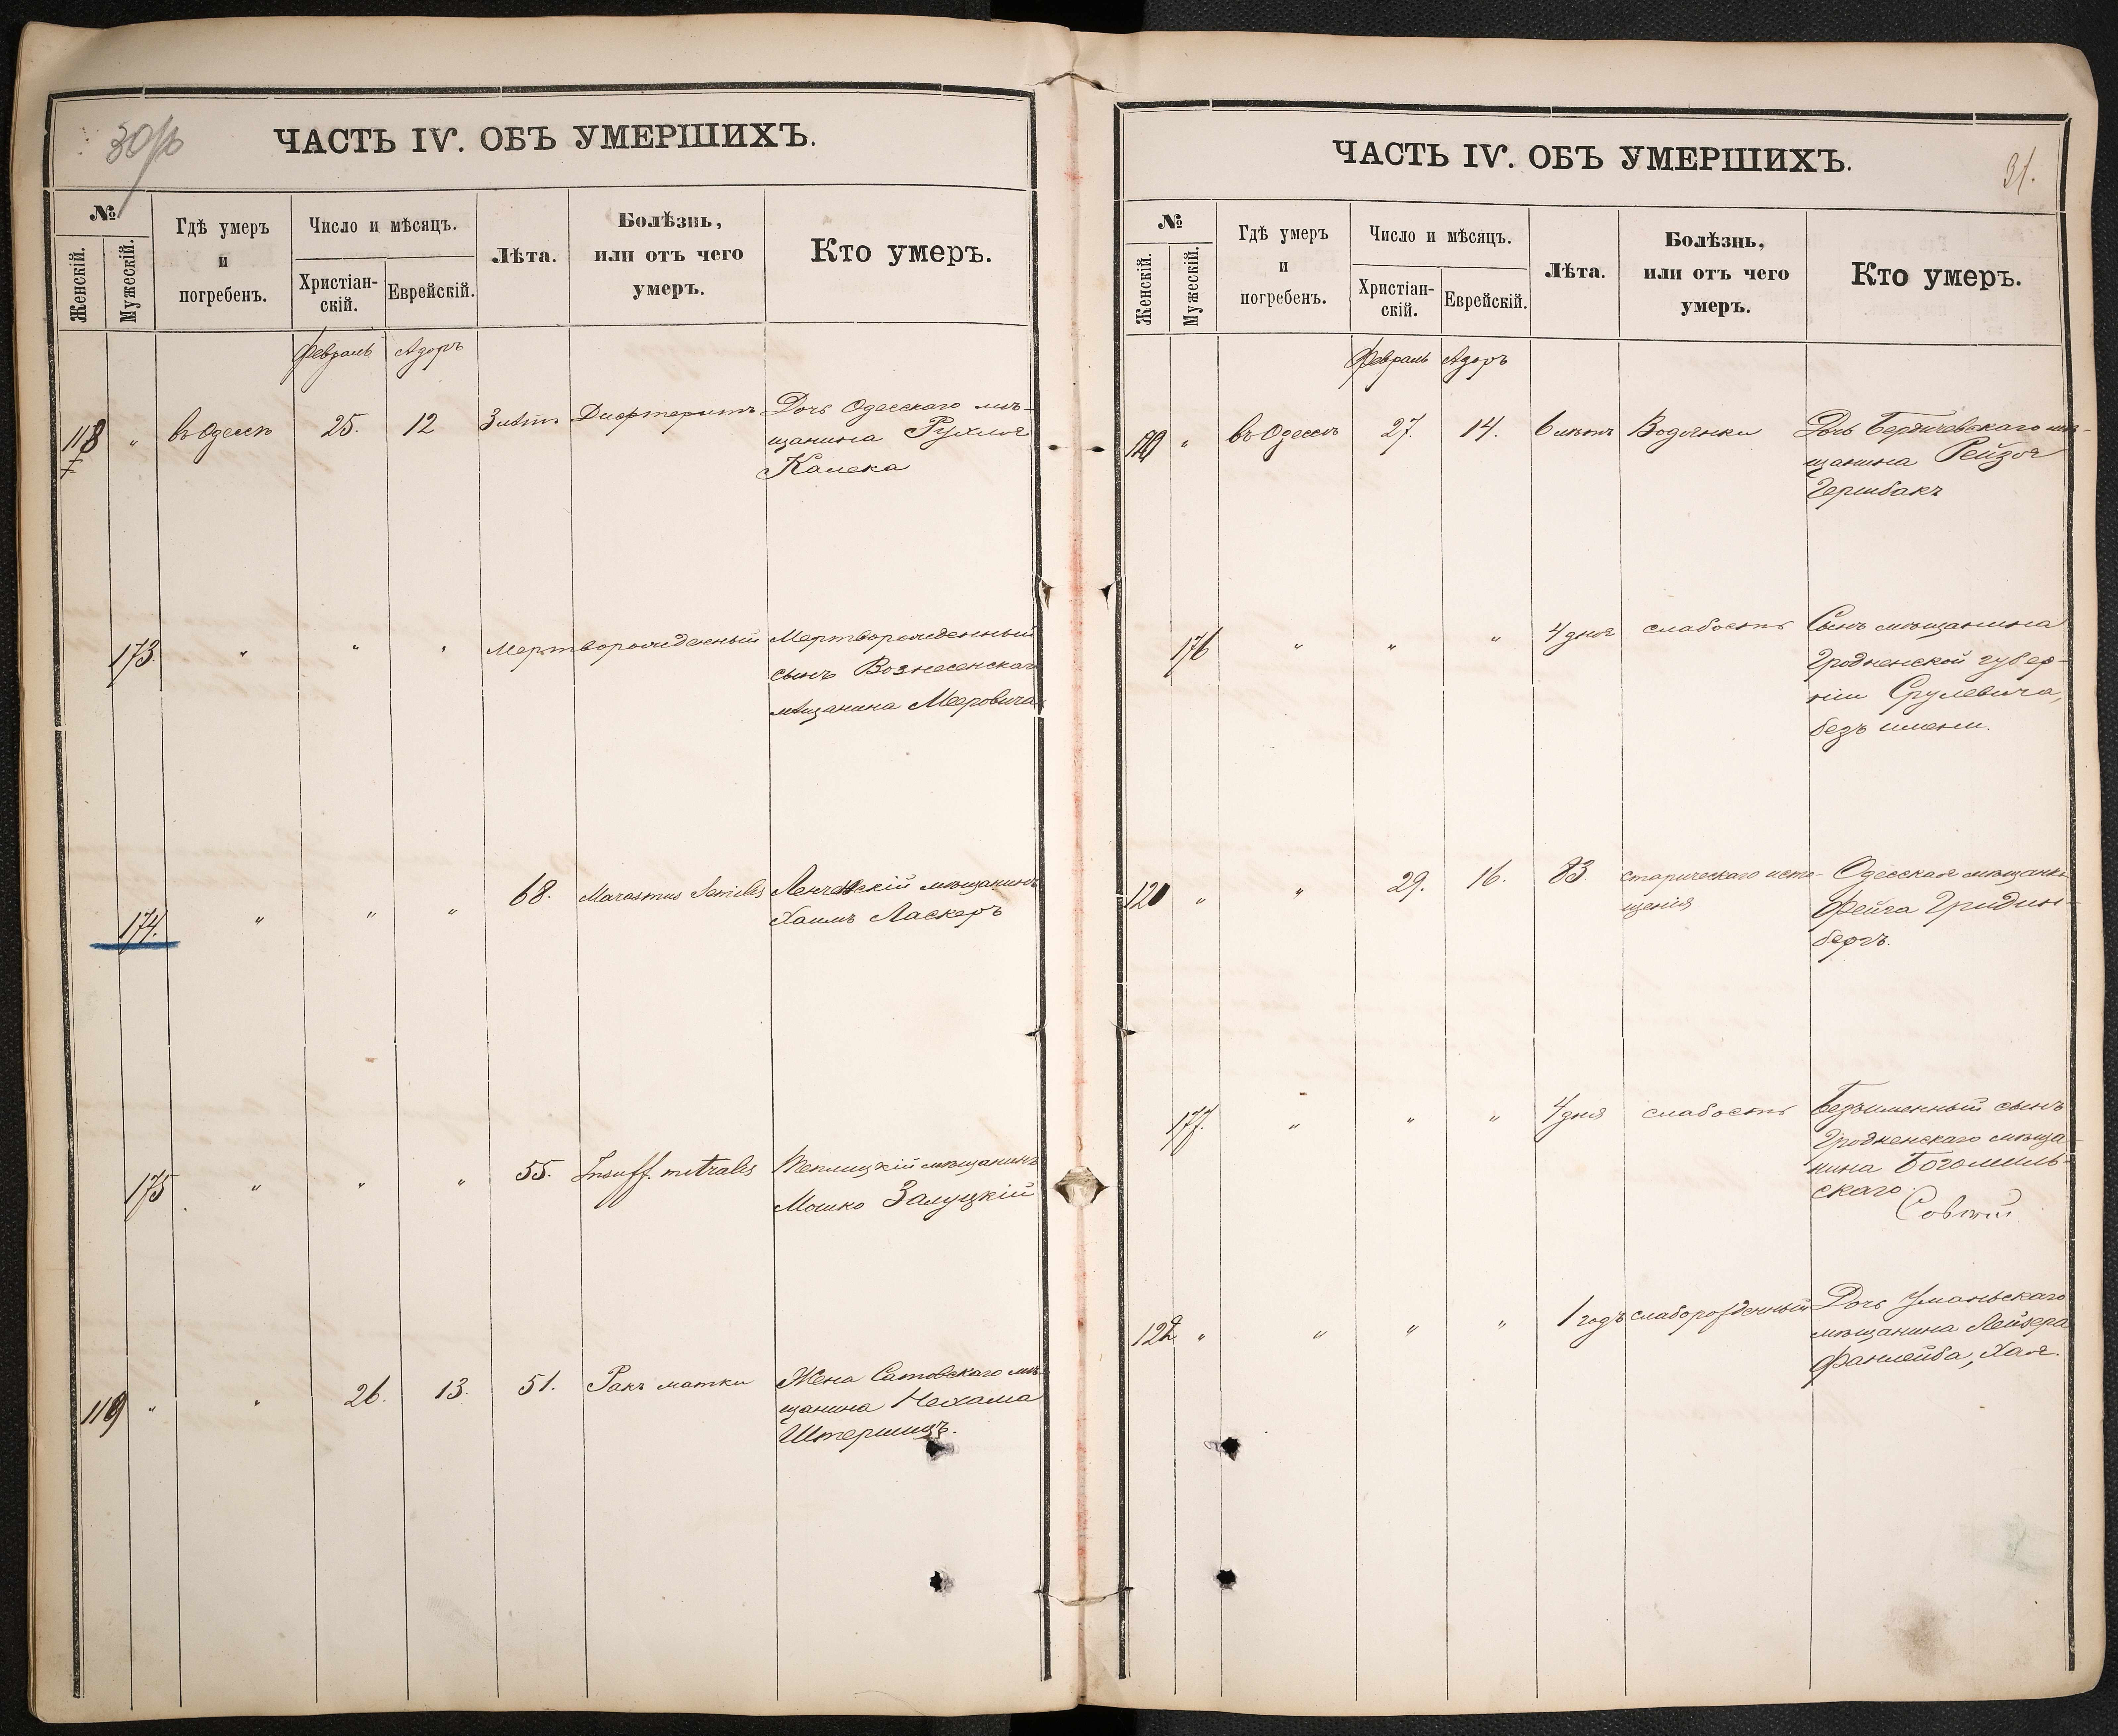 30/16
ЧАСТЬ IV. ОБЪ УМЕРШИХЪ.
№
Женскій.
Мужескій.
Гдѣ умеръ
и
погребенъ.
Число и мѣсяцъ.
Христіан-
скій.
Еврейскій.
Лѣта.
Болѣзнь,
или отъ чего
умеръ.
Кто умеръ.
Февраль Адоръ
118 " въ Одессѣ 25. 12 3 лѣтъ Дифтеритъ Дочь Одесскаго мѣ-
щанина Рухля
Калека
173. " " " Мертворожденный Мертворожденный
сынъ Вознесенскаго
мѣщанина Меeровича
174. " " " 68. Marasmus Senilis мѣщанинъ
Хаимъ Ласкеръ
175 " " " 55. Insuff. mitralis Теплицкій мѣщанинъ
Мошко Залуцкій
119 " " 26. 13. 51. Ракъ матки Жена мѣ-
щанина Нехама
ЧАСТЬ IV. ОБЪ УМЕРШИХЪ.
31.
№
Женскій.
Мужескій.
Гдѣ умеръ
и
погребенъ.
Число и мѣсяцъ.
Христіан-
скій.
Еврейскій.
Лѣта.
Болѣзнь,
или отъ чего
умеръ.
Кто умеръ.
Февраль Адоръ
" въ Одессѣ 27. 14. 6 лѣтъ Водянки Дочь Бердичевскаго мѣ-
щанина Рейзя
Гершбакъ
176 " " " 4 дня слабость Сынъ мѣщанина
Гродненской губер-
ніи Срулевича,
безъ имени.
120 " " 29. 16. 83 старческаго исто-
щенія
Одесская мѣщанка
Фейга Гридин-
бергъ.
177. " " " 4 дня слабость Безъименный сынъ
Гродненскаго мѣща-
нина Богомиль-
скаго.
122 " " " " 1 годъ слаборожденный Дочь Уманьскаго
мѣщанина Лейзера
Фанлейба, Хая.